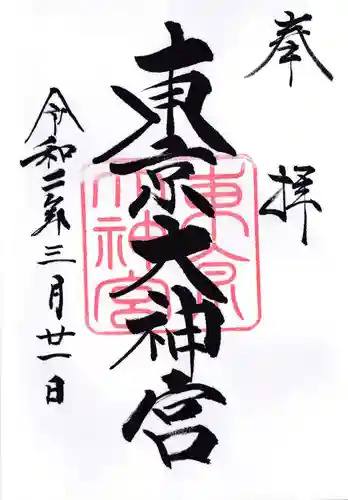 奉拝
東京大神宮
令和二年三月廿一日
東京大神宮